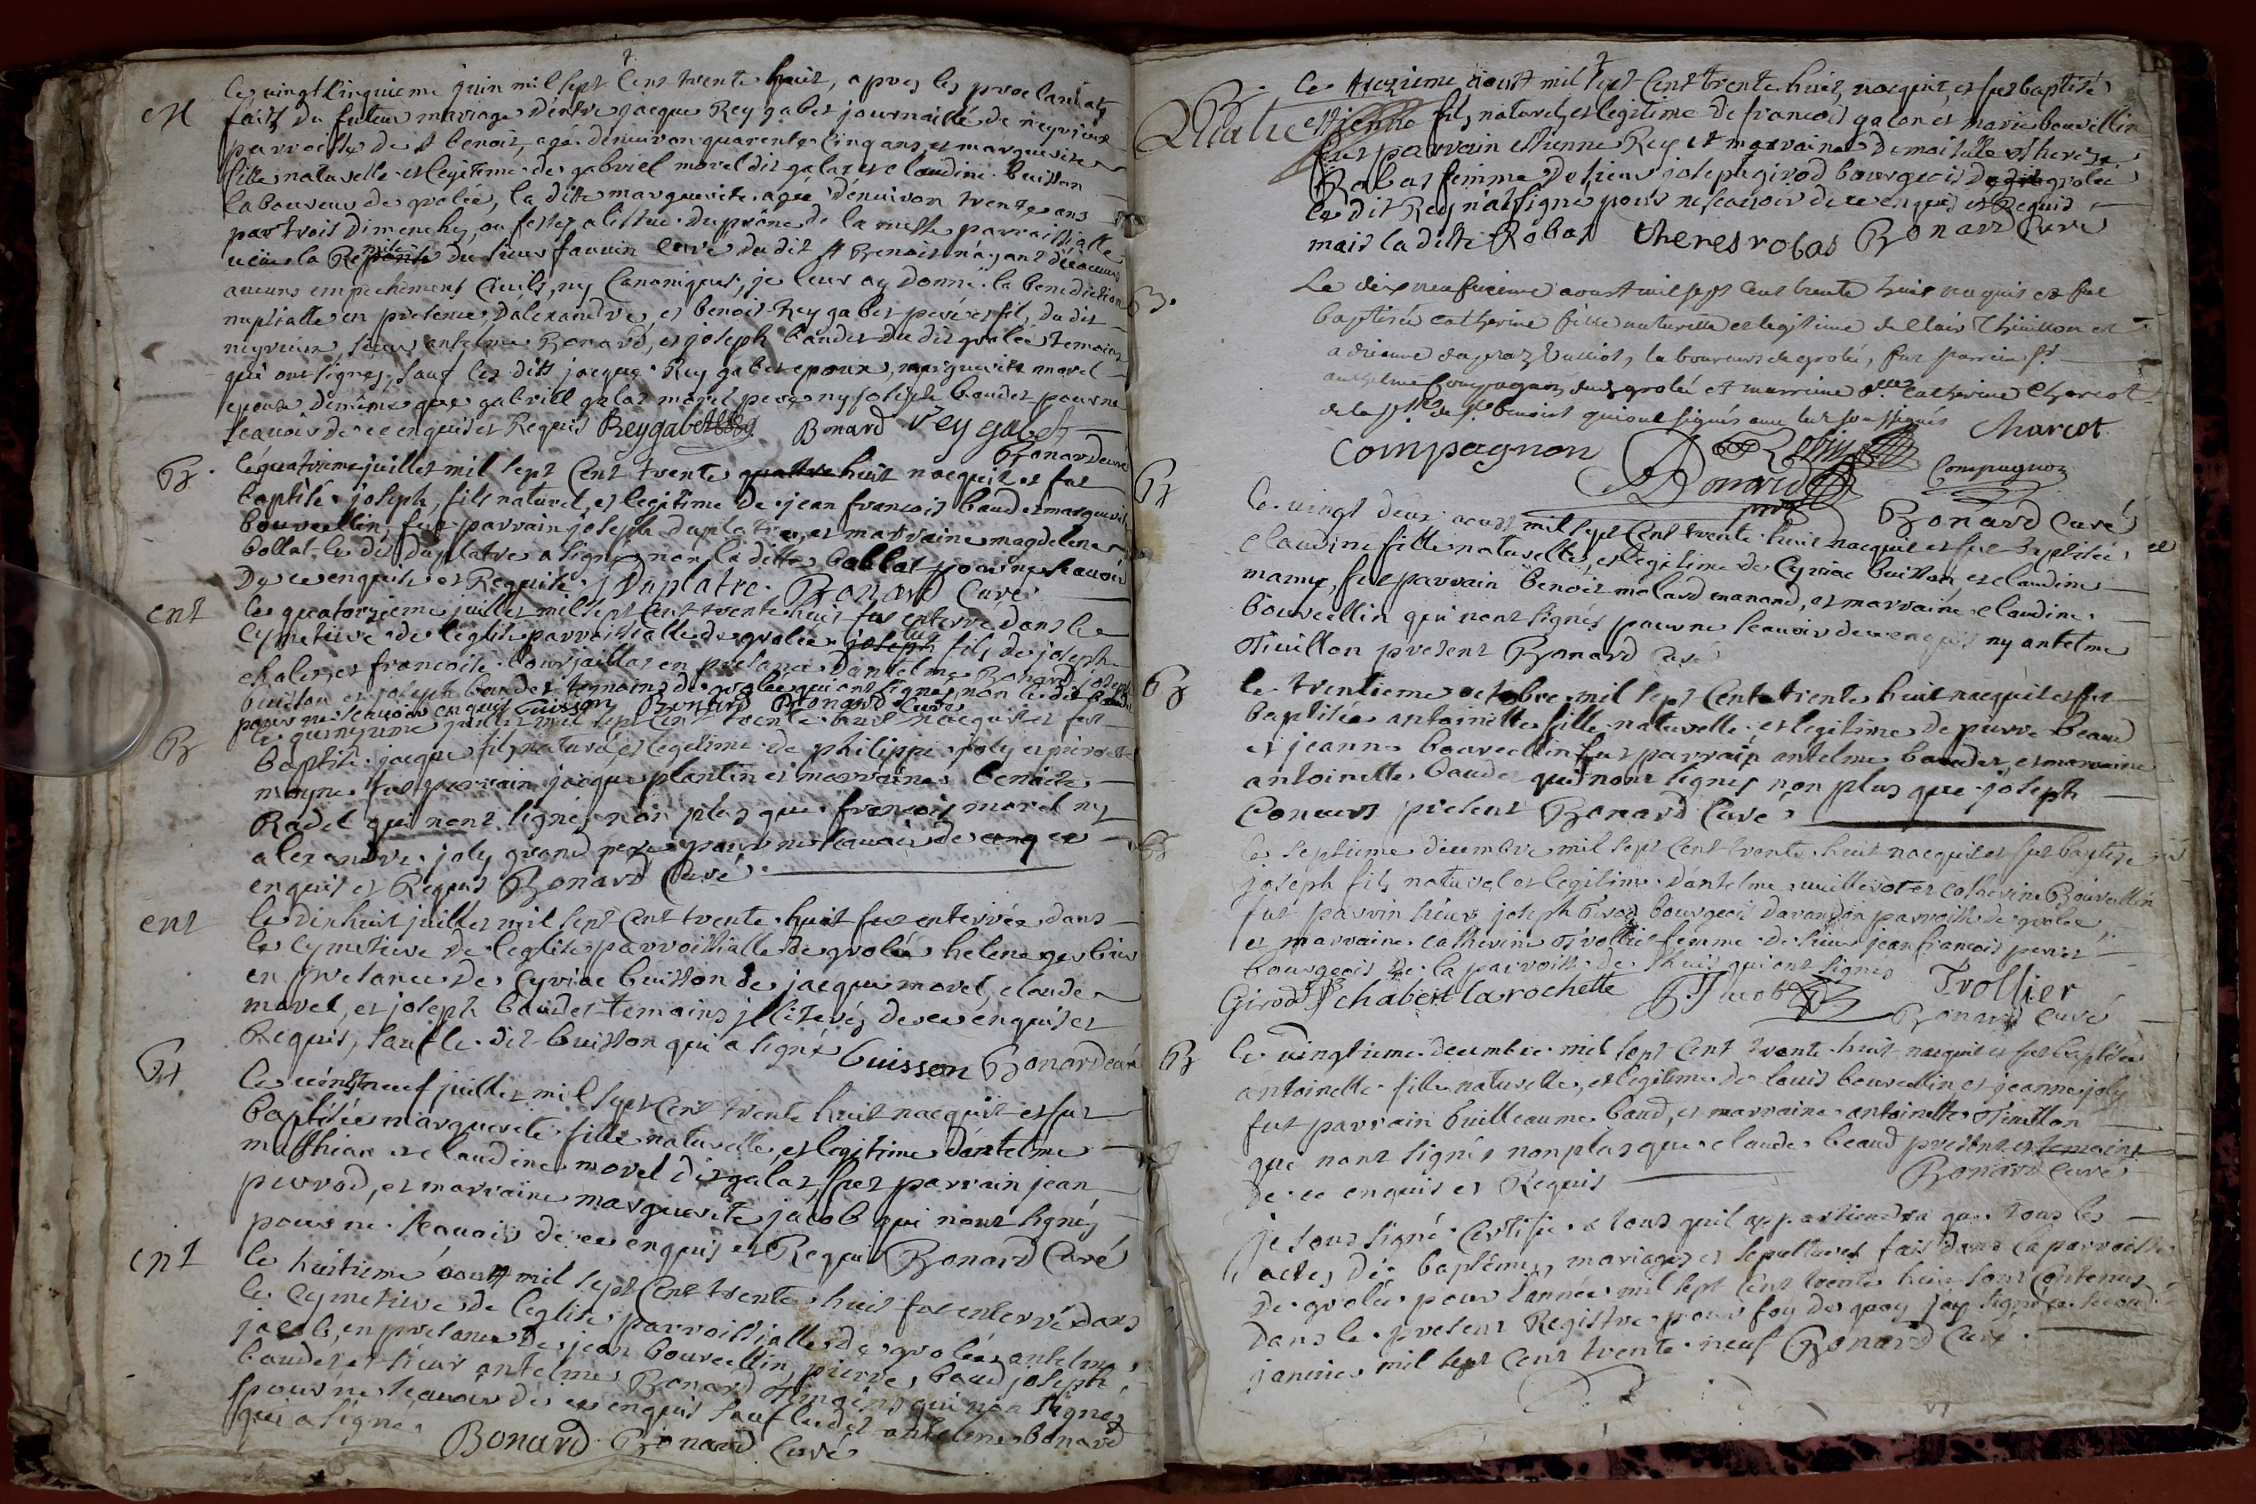 M
le vingt cinquieme juin mil sept cent trente huit, apres les proclamats
faits du futeur mariage d'entre jacque Rey gabet journaillé de neyrieux
parroesse de st benoit, agé d'enuiron quarente cinq ans, et marguerite
fille naturelle et legitime de gabriel morel dit galat et claudine buisson
laboureur de grolée, la ditte marguerite agée d'enuiron trente ans
par trois dimenches, ou festes a lissue du prône de la messe parroissialle
veüe la Remise du sieur curé du dit st Benoit n'ayant découuert
aucuns empechement ciuils, ny canoniques, je leur ay donné la benediction
nuptialle en presence d'alexandre, et benoit Rey gabet pere et fils, du dit
neyrieux, sieur antelme Bonard, et joseph baudet du dit grolée temoins
qui ont signez, sauf les dits jacque Rey gabet epoux, marguerite morel
epouse de même que gabriell galat morel pere ny joseph baudet pour ne
scauoir de ce enquis et Requis Reygabet Bonard reygabet
Bonard curé
B.
le quatrieme juillet mil sept cent trente quattre huit nacquit et fut
baptisé joseph, fils naturel, et legitime de jean francois baud et marguerite
bourcellin, fut parrain joseph duplatre, et marraine magdelene
bollat, le dit duplatre a signé, non la ditte ballat pour ne scauoir
de ce enquise et Requise. j Duplatre. Bonard Curé
ent
le quatorzieme juillet mil sept cent trente huit fut enterré dans le
cymetiere de leglise parroissialle de grolée joseph fils de joseph
et francoise en presence d'antelme Bonard, joseph
buisson et joseph baudet temoins de grolée qui ont signez non le dit baudet
pour ne scauoir enquis buisson Bonard Bonard Curé
B
le quinzieme juillet mil sept cent trente huit nacquit et fut
baptisé jacque fils naturel, et legitime de philippe joly et pierrotte
moyne fut parrain jacque plantin et marraine benoite
Radel qui n'ont signé, non plus que francois morel ny
alexandre joly grand pere pour ne scauoir de ce
enquis et Requis Bonard Curé
ent
le dix huit juillet mil sept cent trente huit fut enterrée dans
le cymetiere de leglise parroissialle de grolée helene gerbin
en presence de cyriac buisson de jacque morel, claude
morel, et joseph baudet temoins jlliterés de ce enquis et
Requis, sauf le dit buisson qui a signé buisson Bonard curé
B
le vint neuf juillet mil sept cent trente huit nacquit et fut
baptisée marguerite fille naturelle, et legitime d'antelme
mathian et claudine morel dit galat, fut parrain jean
perrod, et marraine marguerite jacob qui n'ont signés
pour ne scauoir de ce enquis et Requis Bonard Curé
ent
le huitieme aout mil sept cent trente huit fut enterré dans
le cymetiere de leglise parroissialle de grolée antelme
jacob, en presence de jean bourcellin, pierre baud, joseph
baudet et sieur antelme Bonard temoins qui n'on signez
pour ne scauoir de ce enquis sauf le dit antelme bonard
qui a signé. Bonard Bonard Curé
B.
le trezieme aoust mil sept cent trente huit, nacquit, et fut baptisé
estienne fils naturel, et legitime de francois galon et marie bourcellin
fut parrain estienne Rey et marraine demoiselle therese
Robas femme de sieur joseph girod bourgeois de grolée
le dit Rey n'at signé pour ne scauoir de ce enquis et Requis
mais la ditte Robas theres robas Bonard Curé
B.
Le dix neufuieme aoust mil sept cent trente huit naquit et fut
baptisée catherine fille naturelle et legitime de clair Thiuillon et
adrienne vulliot, laboureur de grolée, fut parrain sr
anthelme Compagnon dudt grolée et marraine dlle Catherine Charcot
de la psse de st benoist qui ont signés auec les soussignés Charcot
Compagnon Bonard Compagnon
Bonard curé
B
le vingt deux aoust mil sept cent trente huit nacquit et fut baptisée
claudine fille naturelle, et legitime de Cyriac buisson, et claudine
mamy, fut parrain benoit molard manand, et marraine claudine
bourcellin qui n'ont signés pour ne scauoir de ce enquis ny antelme
Tiuillon present Bonard Curé
B
le trentieme octobre mil sept cent trente huit nacquit et fut
baptisée antoinette fille naturelle et legitime de pierre beaud
et jeanne bourcellin fut parrain antelme baudet, et marraine
antoinette baudet qui n'ont signez non plus que joseph
Conuers present Bonard Curé
B
le septieme decembre mil sept cent trente huit nacquit et fut baptisé
joseph fils naturel et legitime d'antelme vuillerot et catherine Bourcellin
fut parrin sieur joseph Girod bourgeois d'arandon parroisse de grolée,
et marraine catherine Trollier femme de sieur jean francois perret
bourgeois de la parroisse de qui ont signes
Girod chabert larochette Jacob Trollier
Bonard curé
B
le vingtieme decembre mil sept cent trente huit nacquit et fut baptisée
antoinette fille naturelle, et legitime de louis bourcellin et jeanne joly
fut parrain Guilleaume baud, et marraine antoinette Tiuillon
qui n'ont signés non plus que claude beaud present et temoins
de ce enquis et Requis Bonard Curé
je sous signé certifie a tous quil appartiendra que tous les
actes de baptêmes, mariages et sepultures fait dans la parroisse
de grolée pour l'année mil sept cent trente huit sont contenus
dans le present Registre, pour foy de quoy j'ay signé ce second
janvier mil sept cent trente neuf Bonard Curé.